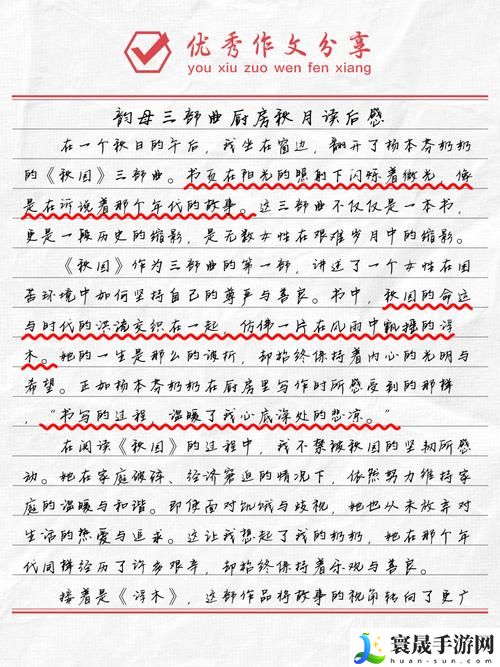 优秀作文分享
you xiu zuo wen fen xiang
韵母三部曲厨房秋月读后感
在一个秋日的午后，我坐在窗边，翻开了杨本芬奶奶
的《秋园》三部曲。书页在阳光的照射下闪烁着微光，像
是在诉说着那个年代的故事。这三部曲不仅仅是一本书，
更是一段历史的缩影，是无数女性在艰难岁月中的缩影。
《秋园》作为三部曲的第一部，讲述了一个女性在困
苦环境中如何坚持自己的尊严与善良。书中，秋园的命运
与时代的洪流交织在一起，仿佛一片在风雨中飘摇的浮
木。她的一生是那么的波折，却始终保持着内心的光明与
希望。正如杨本芬奶奶在厨房里写作时所感受到的那样
，“书写的过程，温暖了我心底深处的悲凉。”
在阅读《秋园》的过程中，我不禁被秋园的坚韧所感
动。她在家庭破碎、经济窘迫的情况下，依然努力维持家
庭的温暖与和谐。即便面对饥饿与歧视，她也从未放弃对
生活的热爱与追求。这让我想起了我的奶奶，她在那个年
代同样经历了许多艰辛，却始终保持着乐观与善良。
接着是《浮木》，这部作品将故事的视角转向了更广
寰晟手游网
www.huanshengsy.com